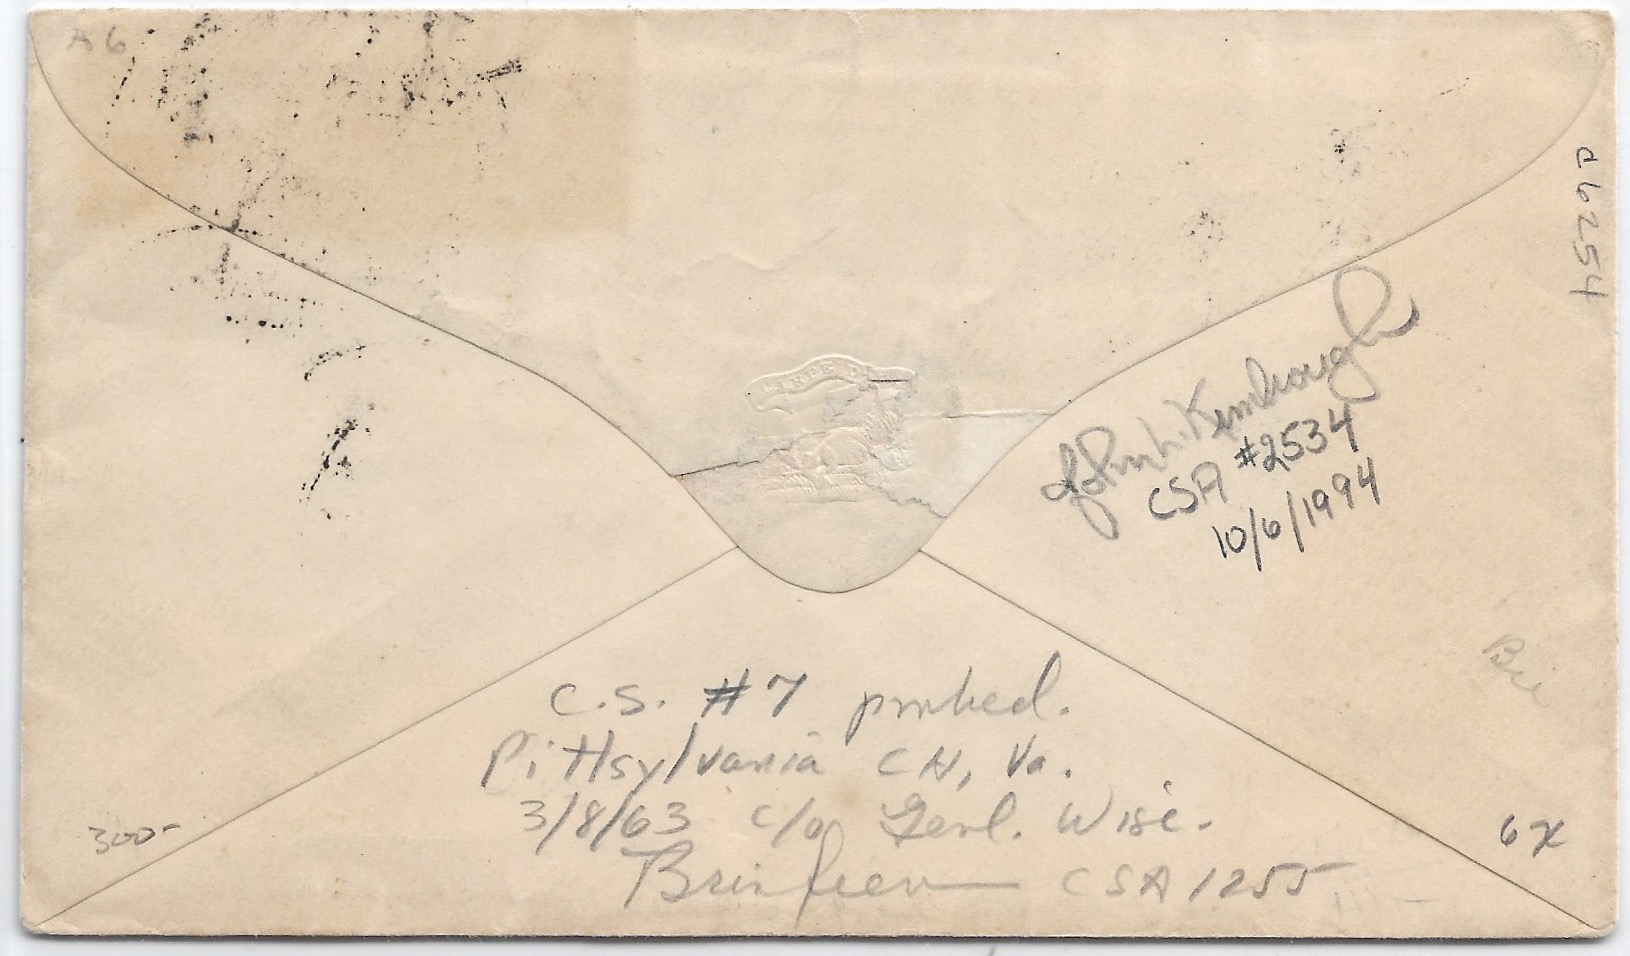 A6
d6254
CARPE D
John L. Kimbrough
CSA #2534
10/6/1994
C.S. #7 pmked.
Pittsylvania CH, Va.
3/8/63 c/o Genl. Wise.
CSA 1255
300-
6X